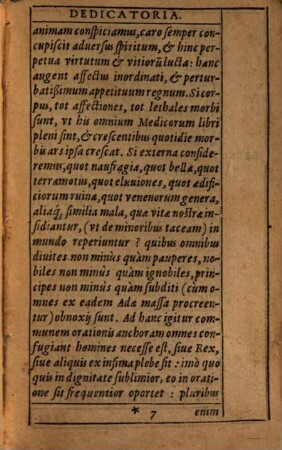 DEDICATORIA.
animam conspiciamus, caro semper con-
cupiscit aduersus spiritum, & hinc per-
petua virtutum & vitiorũ lucta: hanc
augent affectus inordinati, & pertur-
batißimum appetituum regnum. Si cor-
pus, tot affectiones, tot lethales morbi
sunt, vt his omnium Medicorum libri
pleni sint, & crescentibus quotidie mor-
bis ars ipsa crescat. Si externa conside-
remus, quot naufragia, quot bella, quot
terræmotus, quot eluuiones, quot ædifi-
ciorum ruinæ, quot venenorum genera,
aliaq́, similia mala, quæ vitæ nostræ in-
sidiantur, (vt de minoribus taceam) in
mundo reperiuntur? quibus omnibus
diuites non minùs quàm pauperes, no-
biles non minùs quàm ignobiles, prin-
cipes non minùs quàm subditi (cùm o-
mnes ex eadem Adæ massa procreen-
tur) obnoxij sunt. Ad hanc igitur com-
munem orationis anchoram omnes con-
fugiant homines necesse est, siue Rex,
siue aliquis ex infima plebe sit: imò quo
quis in dignitate sublimior, eo in orati-
one sit frequentior oportet: pluribus
* 7 enim